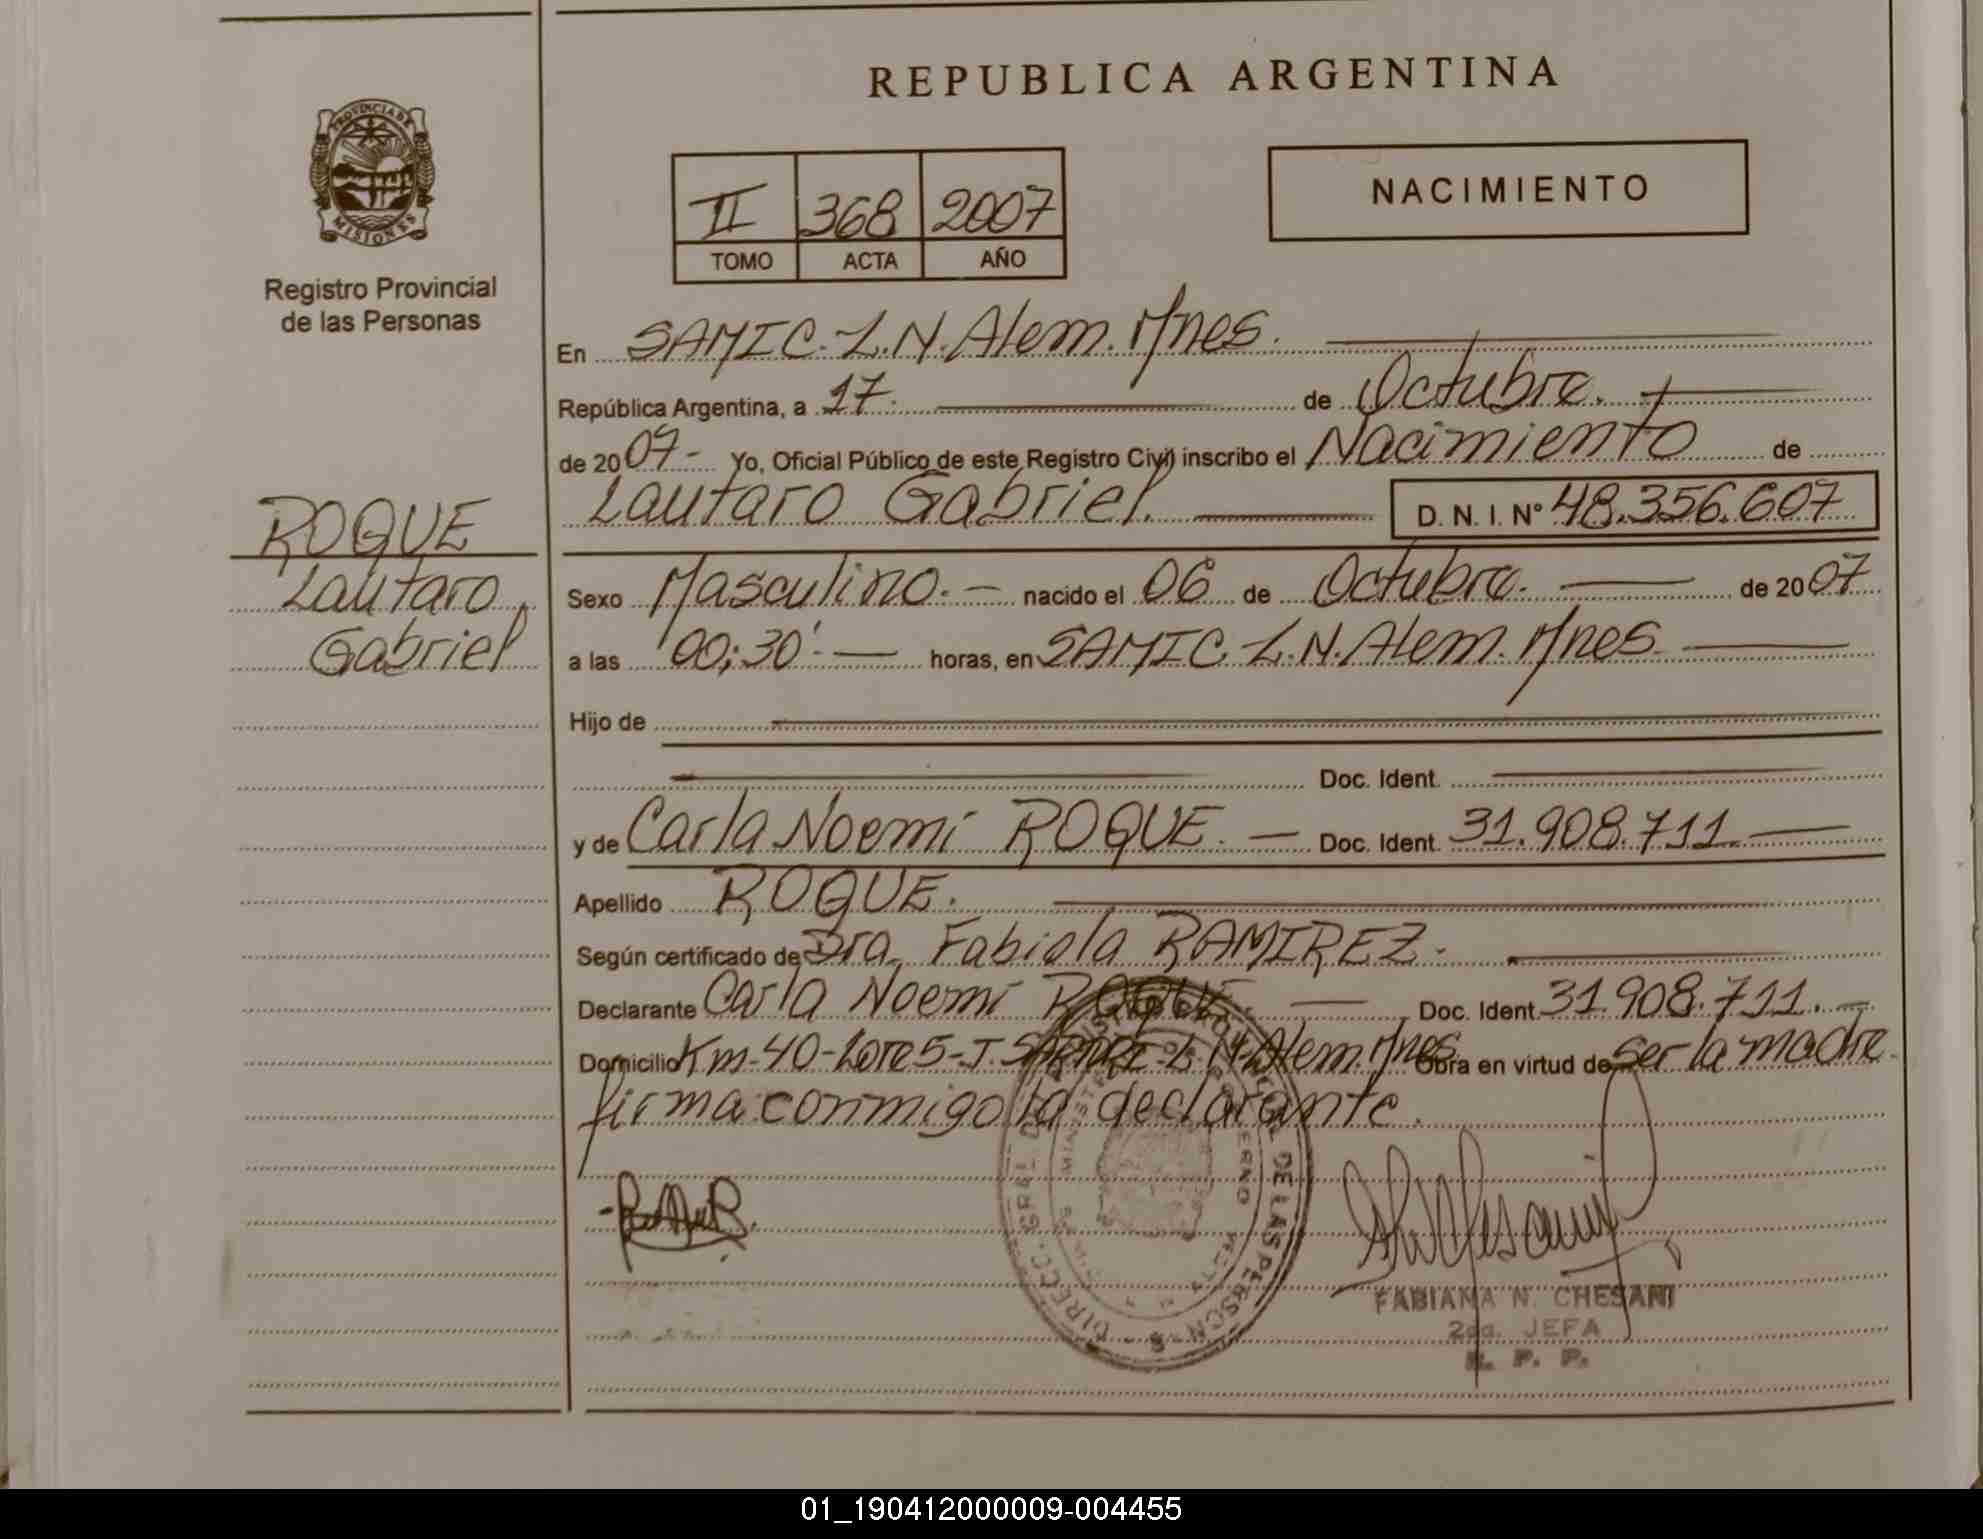 REPUBLICA ARGENTINA
PROVINCIA DE
MISIONES
Registro Provincial
de las Personas
II 368 2007
TOMO ACTA AÑO
NACIMIENTO
En SAMIC. L.N. Alem. Mnes.
República Argentina, a 17. de Octubre.
de 20 07- Yo, Oficial Público de este Registro Civil inscribo el Nacimiento de
Lautaro Gabriel. D. N. I. Nº 48.356.607
ROQUE
Lautaro
Gabriel
Sexo Masculino. nacido el 06 de Octubre. de 20 07
a las 00:30'. horas, en SAMIC. L.N. Alem. Mnes.
Hijo de
Doc. Ident.
y de Carla Noemí ROQUE. Doc. Ident. 31.908.711.
Apellido ROQUE.
Según certificado de Dra. Fabiola RAMIREZ.
Declarante Carla Noemí ROQUE. Doc. Ident 31.908.711.
Domicilio Km-40-Lote 5-J. L.N. Alem. Mnes. Obra en virtud de ser la madre.
firma conmigo la declarante.
DE LAS PERSONAS
FABIANA N. CHESANI
2da. JEFA
R. P. P.
01_190412000009-004455